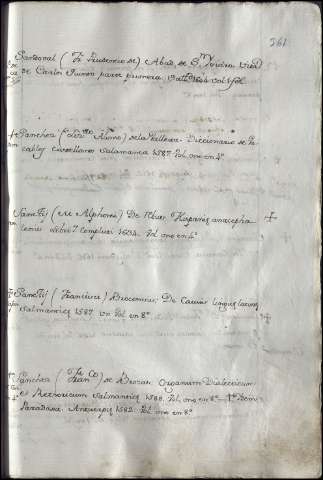 561
Sandoval (Fr. Prudencio de) Abad de Sn. Isidro Vida
de Carlos Quinto parte primera Valld. 1604 vol. 1 fol.
Sanchez (el Licdo. Alonso) de la Ballesta Diccionario de Vo
cablos Castellanos Salamanca 1587. Vol. uno en 4º
Sanctij (M. Alphonsi) De Rebus Hispaniæ anacepha
leosis Libri 7 Compluti 1634. Vol. uno en 4º
Sanctij (Francisci) Brocensis, De Causis linguæ latinæ
Salmanticæ 1587. un Vol. en 8º
Sanchez (Franco.) de Brozas Organum Dialecticum
et Rethoricum Salmanticæ 1588. Vol. uno en 8º
Paradoxa. Antuerpiæ 1582. Vol. uno en 8º